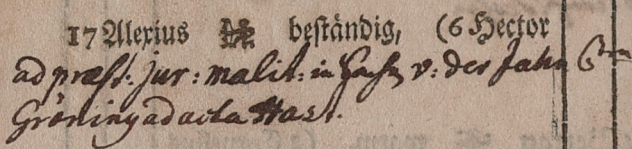 17 Alexius beständig, (6 Hector
ad præst: jur: malit: in Sachen v: der Jahn
Gröning ad acta Hast.